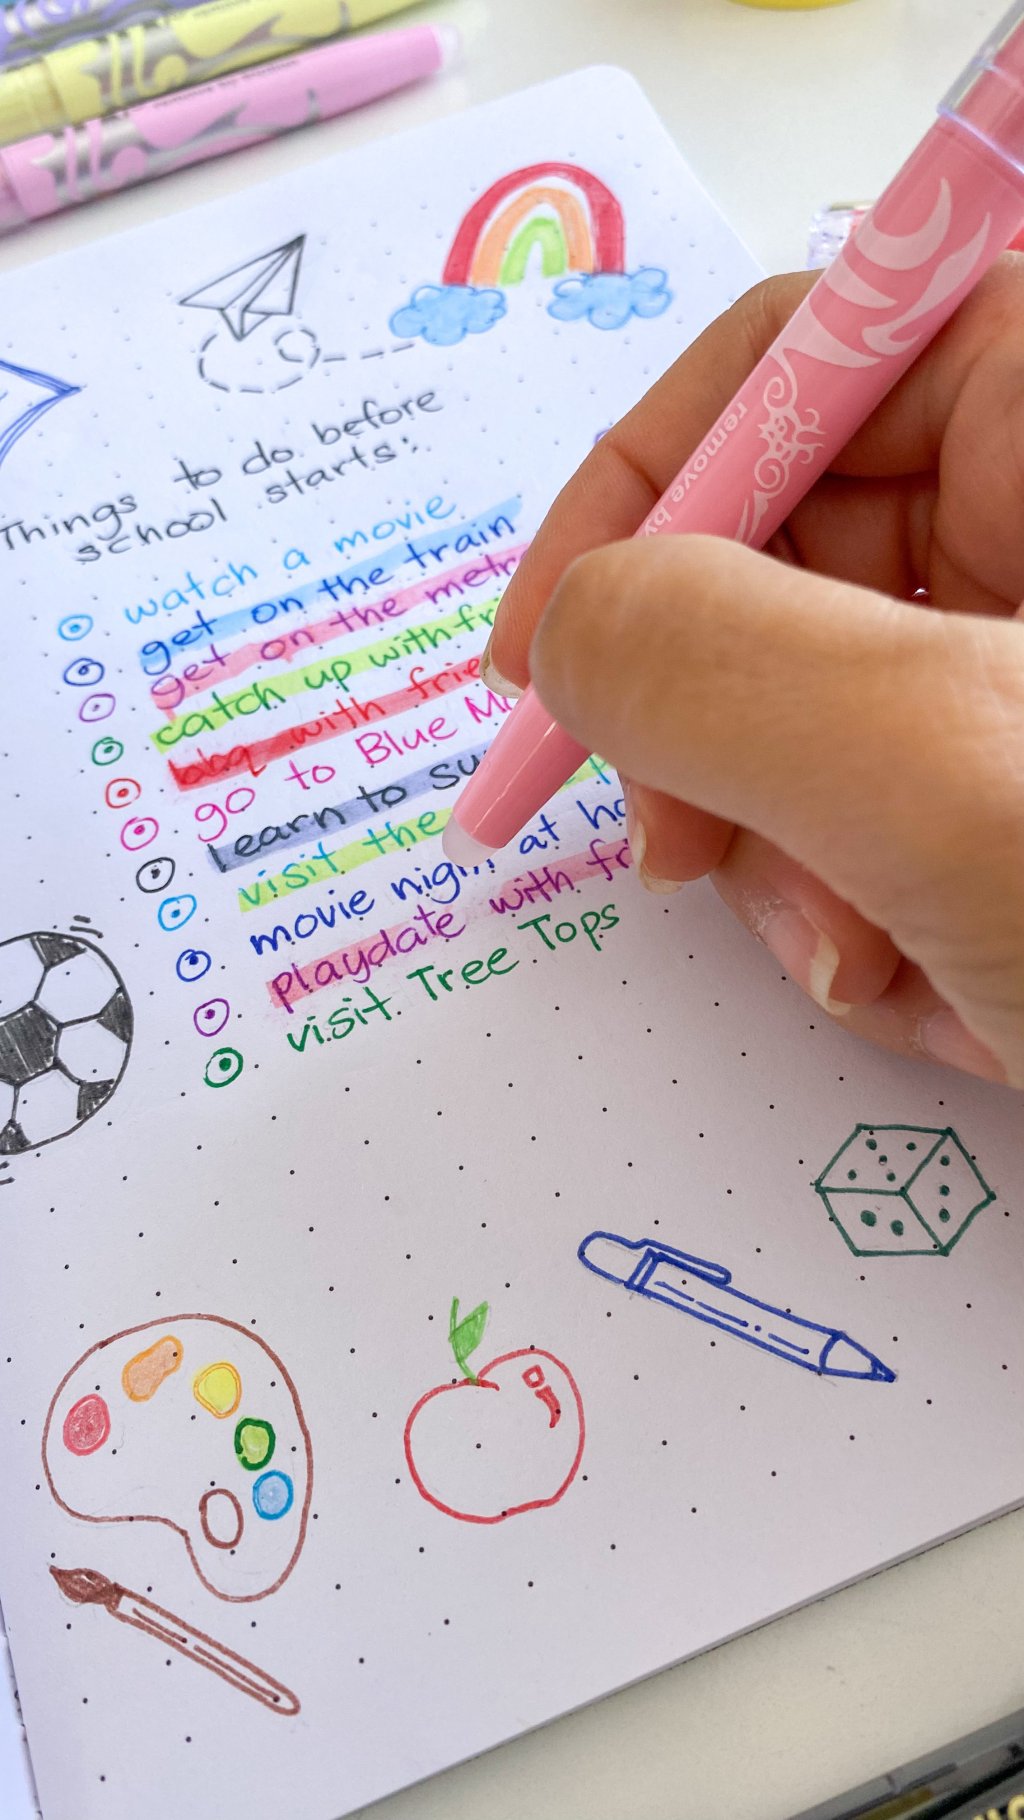 Things to do before
school starts:
watch a movie
get on the train
get on the metro
catch up with
bbq with
go to Blue
learn to
visit the
movie night at
playdate with
visit Tree Tops
remove by